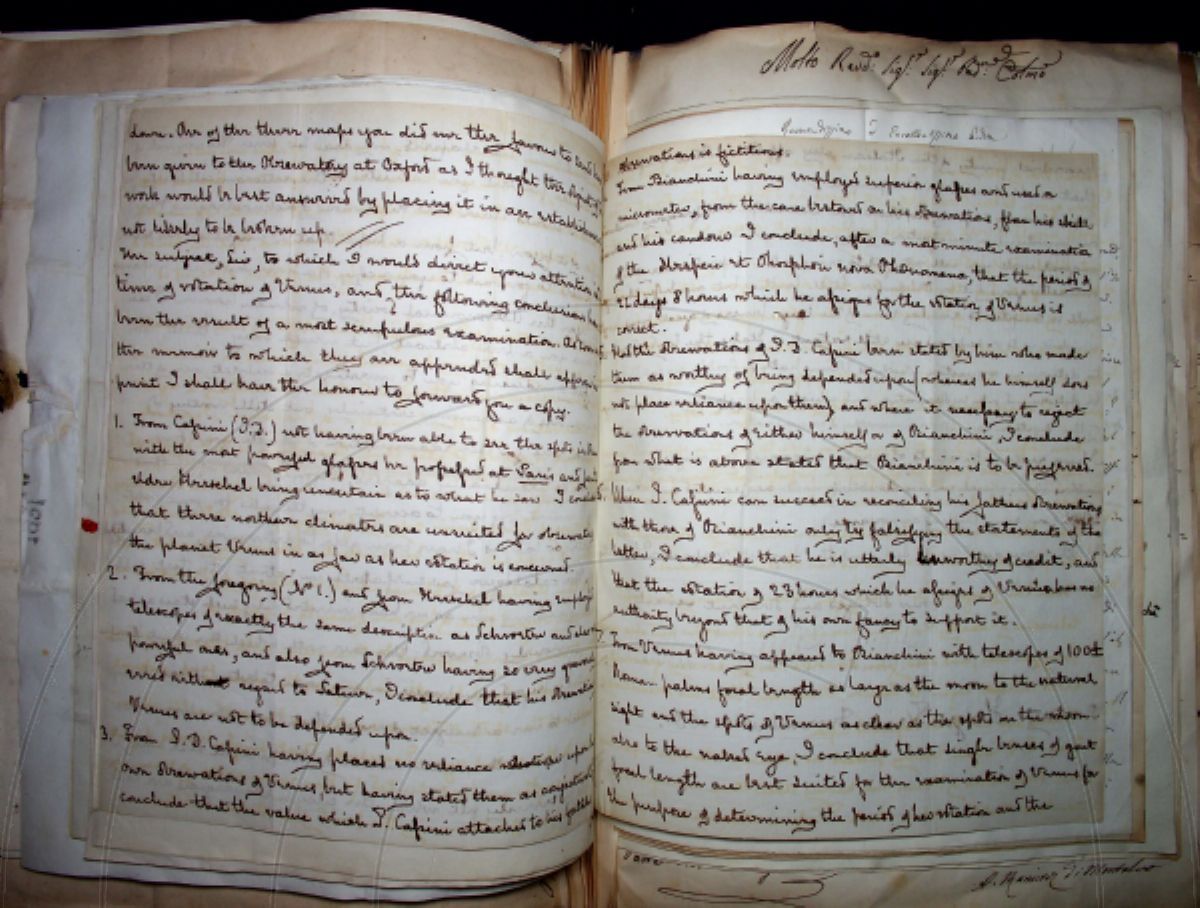 down. One of the three maps you did me the favour to send has
been given to the Observatory at Oxford as I thought the object of
work would be best answered by placing it in an establishment
not likely to be broken up.
The subject, Sir, to which I would direct your attention is
time of rotation of Venus, and the following conclusions have
been the result of a most scrupulous examination. As soon as
the memoir to which they are appended shall appear in
print I shall have the honour to forward you a copy.
1. From Caſsini (J.D.) not having been able to see the spots in
with the most powerful glaſses he poſseſsed at Paris and from
elder Herschel being uncertain as to what he saw I conclude
that these northern climates are unsuited for observing
the planet Venus in as far as her rotation is concerned.
2. From the foregoing (No 1.) and from Herschel having employed
telescopes of exactly the same description as Schroeter and
powerful ones, and also from Schroeter having so very
erred without regard to Saturn, I conclude that his
Venus are not to be depended upon.
3. From J.D. Caſsini having placed no reliance whatever upon his
own observations of Venus, but having stated them as
conclude that the value which J. Caſsini attaches to his father's
Molto Revdo. Sigr. Sigr. Colmo
observations is fictitious.
From Bianchini having employed superior glaſses and used a
micrometer, from the care bestowed on his observations, from his skill
and his candour I conclude, after a most minute examination
of the Hesperi et Phosphori nova Phænomena, that the period of
24 days 8 hours which he aſsigns for the rotation of Venus is
correct.
the observations of J.D. Caſsini been stated by him who made
them as worthy of being depended upon (whereas he himself does
not place reliance upon them), and were it neceſsary to reject
the observations of either himself or of Bianchini, I conclude
from what is above stated that Bianchini is to be preferred.
When J. Caſsini can succeed in reconciling his fathers observations
with those of Bianchini only by falsifying the statements of the
latter, I conclude that he is utterly unworthy of credit, and
that the rotation of 23 hours which he aſsigns to Venus has no
authority beyond that of his own fancy to support it.
From Venus having appeared to Bianchini with telescopes of 100
Roman palms focal length as large as the moon to the natural
sight and the spots of Venus as clear as the spots on the moon
also to the naked eye, I conclude that single lenses of great
focal length are best suited for the examination of Venus for
the purpose of determining the period of her rotation and the